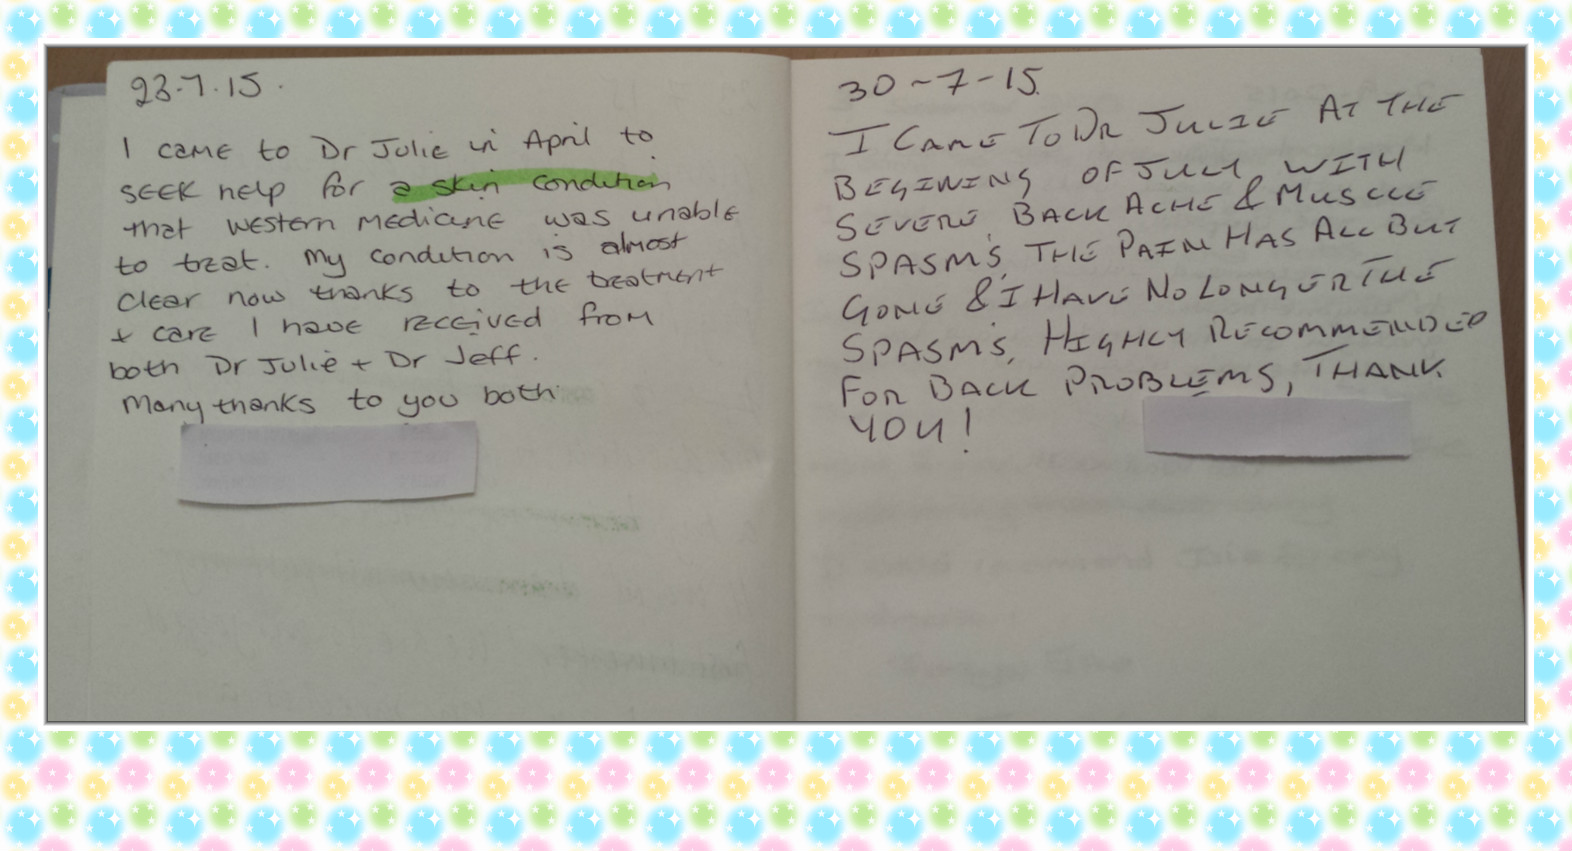 23.7.15.
I came to Dr Julie in April to
seek help for a skin condition
that western medicine was unable
to treat. My condition is almost
clear now thanks to the treatment
+ care I have received from
both Dr Julie + Dr Jeff.
Many thanks to you both
30-7-15.
I CAME TO DR JULIE AT THE
BEGINING OF JULY WITH
SEVERE BACK ACHE & MUSCLE
SPASMS, THE PAIN HAS ALL BUT
GONE & I HAVE NO LONGER THE
SPASMS, HIGHLY RECOMMENDED
FOR BACK PROBLEMS, THANK
YOU!